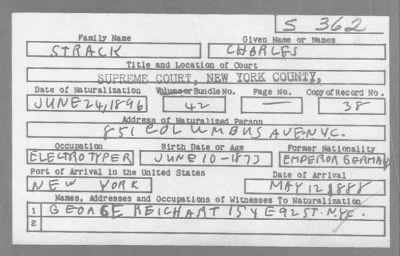 S 362
Family Name Given Name or Names
STRACK CHARLES
Title and Location of Court
SUPREME COURT, NEW YORK COUNTY,
Date of Naturalization Volume or Bundle No. Page No. Copy of Record No.
JUNE 24, 1896 42 — 38
Address of Naturalized Person
851 COLUMBUS AVE NYC.
Occupation Birth Date or Age Former Nationality
ELECTROTYPER JUNE 10-1873 EMPEROR GERMANY
Port of Arrival in the United States Date of Arrival
NEW YORK MAY 12 1888
Names, Addresses and Occupations of Witnesses To Naturalization
1 GEORGE REICHART 154 E 92 ST. NYC.
2